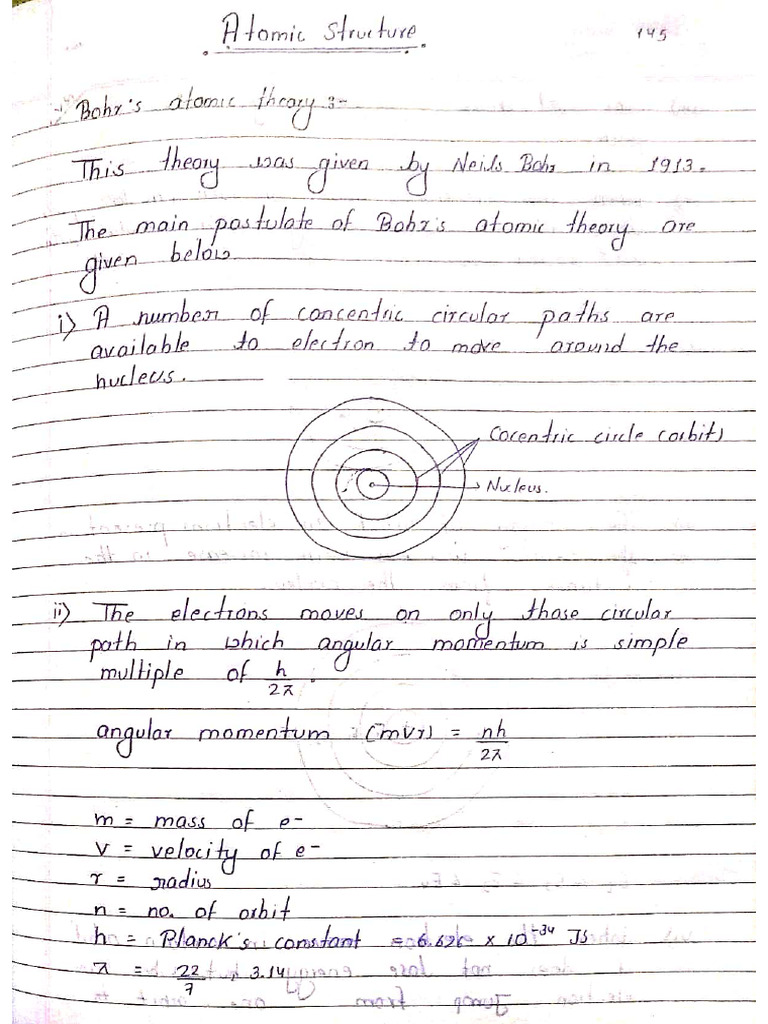 Atomic Structure
145
Bohr's atomic theory :-
This theory was given by Neils Bohr in 1913.
The main postulate of Bohr's atomic theory are
given below
i) A number of concentric circular paths are
available to electron to move around the
nucleus.
Cocentric circle (orbit)
Nucleus.
ii) The electrons moves on only those circular
path in which angular momentum is simple
multiple of h/2π.
angular momentum (mvr) = nh/2π
m = mass of e-
v = velocity of e-
r = radius
n = no. of orbit
h = Planck's constant = 6.626 × 10^-34 Js
π = 22/7, 3.14